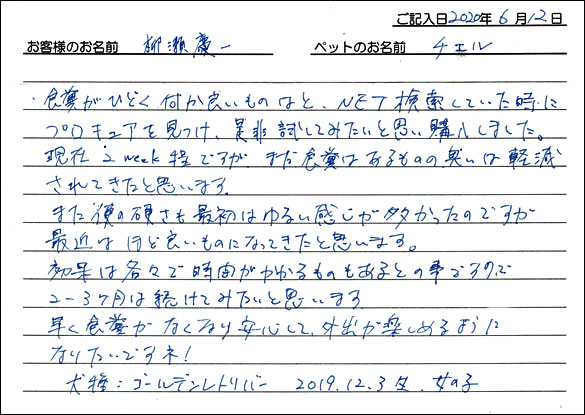 ご記入日2020年6月12日
お客様のお名前 柳瀬慶一 ペットのお名前 チェル
・食糞がひどく何か良いものはと、NET検索していた時に
プロキュアを見つけ、是非試してみたいと思い購入しました。
現在2week程ですが まだ食糞はあるものの臭いは軽減
されてきたと思います。
また糞の硬さも最初はゆるい感じが多かったのですが
最近はほど良いものになってきたと思います。
効果は各々で時間がかかるものもあるとの事ですので
2-3ヶ月は続けてみたいと思います
早く食糞がなくなり安心して、外出が楽しめるように
なりたいですネ!
犬種:ゴールデンレトリバー 2019.12.3生 女の子